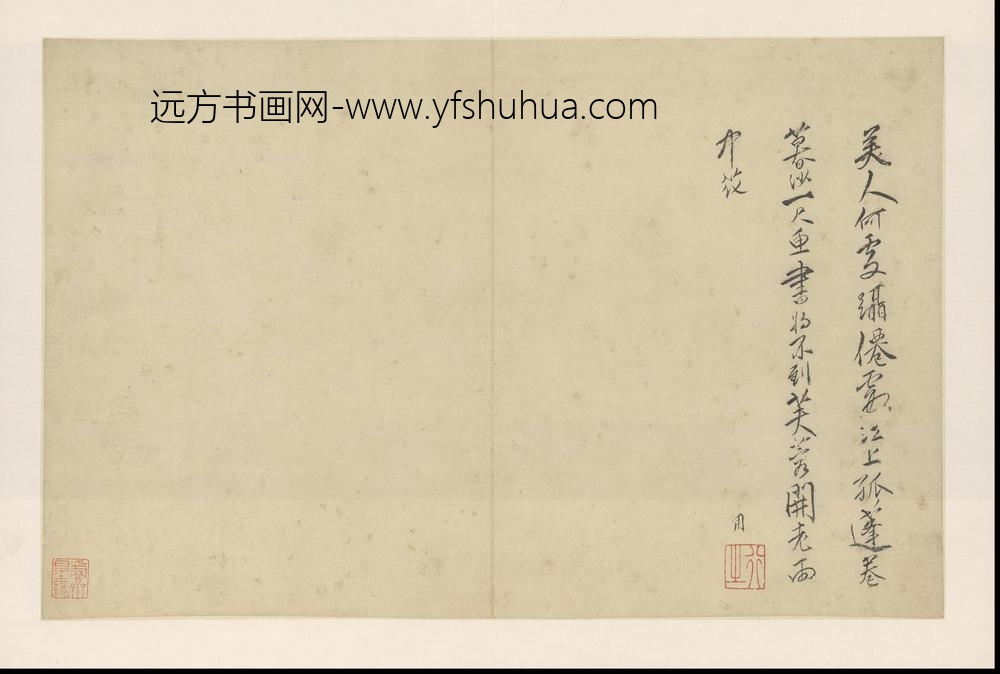 远方书画网-www.yfshuhua.com
美人何處躡僊霞江上孤蓬卷
暮沙一尺魚書将不到芙蓉開老雨
中花
用
行之